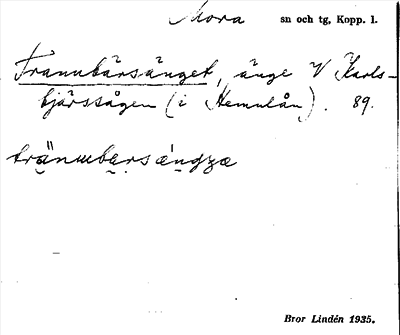 Mora sn och tg, Kopp. l.
Trannbärsänget, änge V Karls-
bjärssågen (i Hemulån). 89.
tränɯbersængzæ
Bror Lindén 1935.